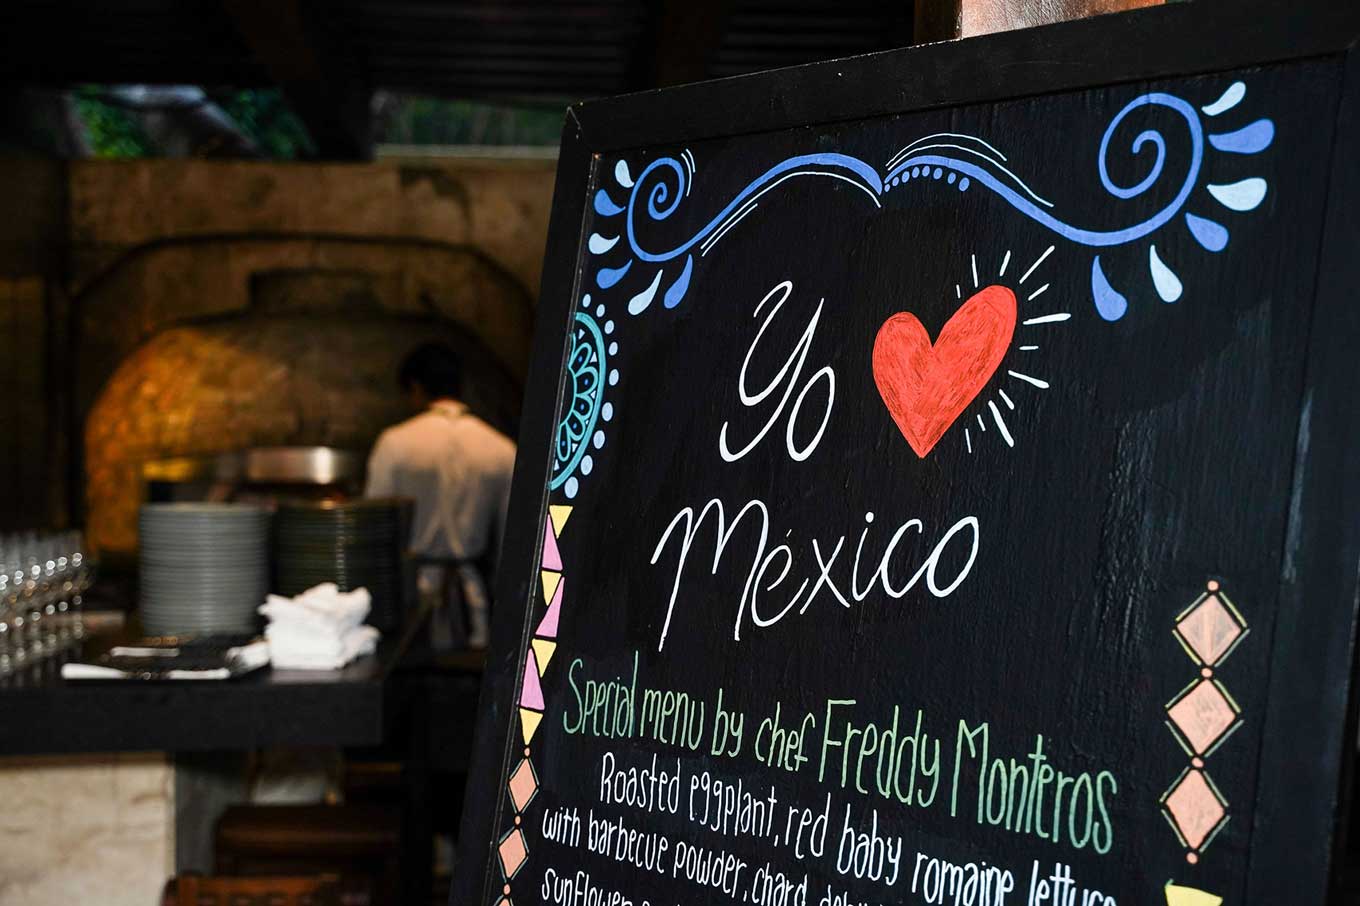 Yo
México
Special menu by chef Freddy Monteros
Roasted eggplant, red baby romaine lettuce
with barbecue powder, chard,
sunflower